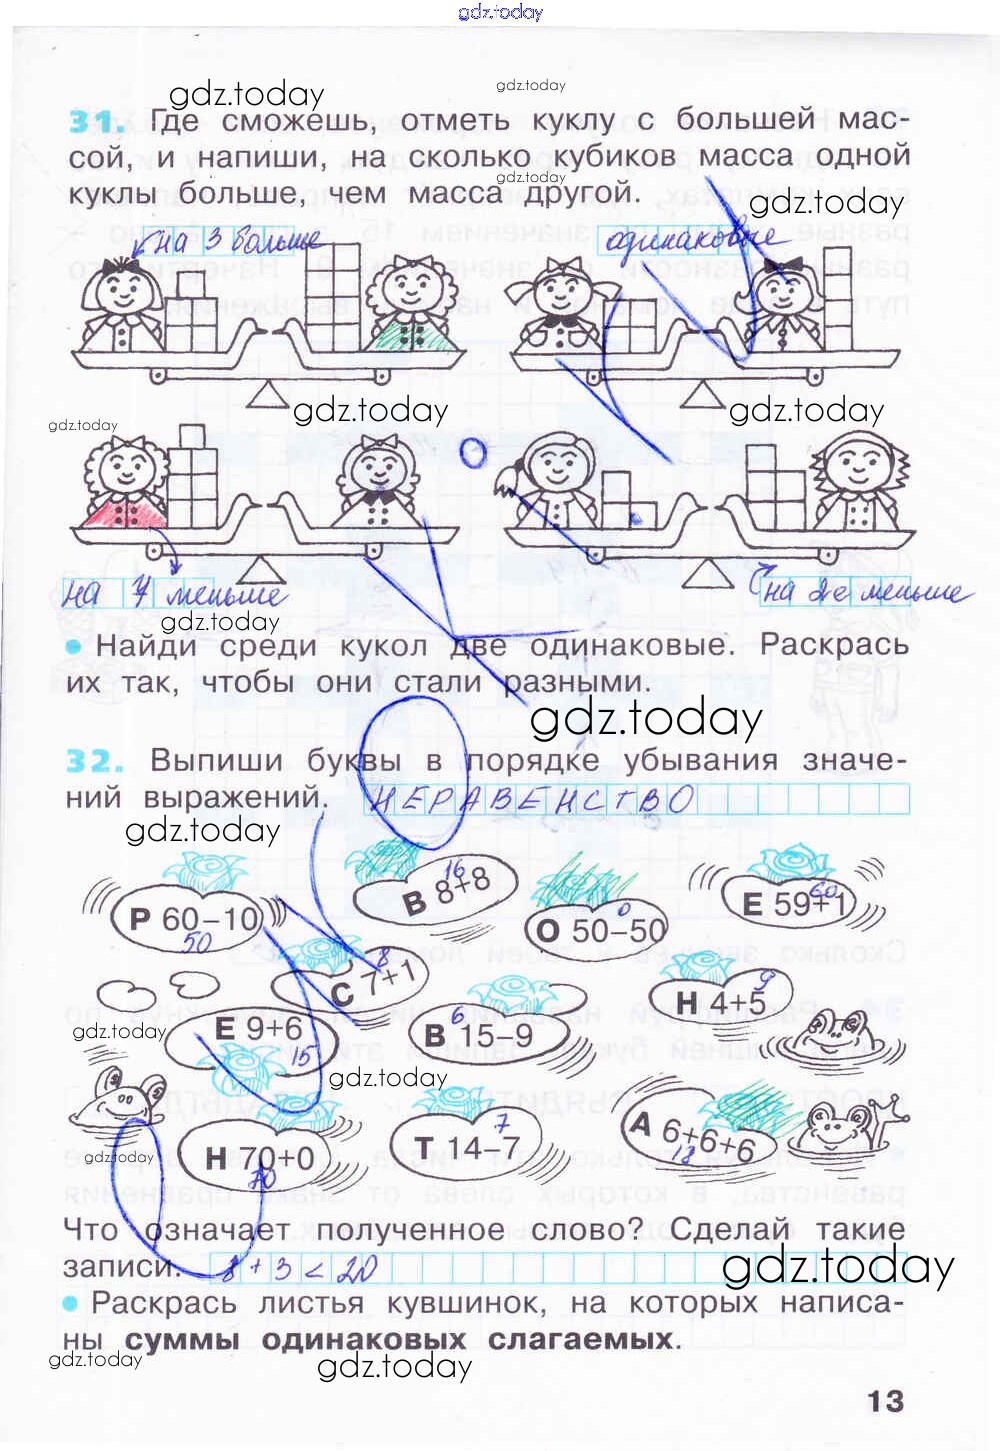 gdz.today
gdz.today
gdz.today
31. Где сможешь, отметь куклу с большей мас-
сой, и напиши, на сколько кубиков масса одной
gdz.today
куклы больше, чем масса другой.
gdz.today
на 3 больше
одинаковые
gdz.today
gdz.today
gdz.today
на 4 меньше
на 2 меньше
gdz.today
• Найди среди кукол две одинаковые. Раскрась
их так, чтобы они стали разными.
gdz.today
32. Выпиши буквы в порядке убывания значе-
ний выражений. НЕРАВЕНСТВО
gdz.today
Р 60-10
50
В 8+8
16
О 50-50
0
Е 59+1
60
С 7+1
8
Н 4+5
9
gdz.today
Е 9+6
15
В 15-9
6
gdz.today
gdz.today
Н 70+0
70
Т 14-7
7
А 6+6+6
18
Что означает полученное слово? Сделай такие
записи. 8+3<20
gdz.today
• Раскрась листья кувшинок, на которых написа-
ны суммы одинаковых слагаемых.
gdz.today
gdz.today
13